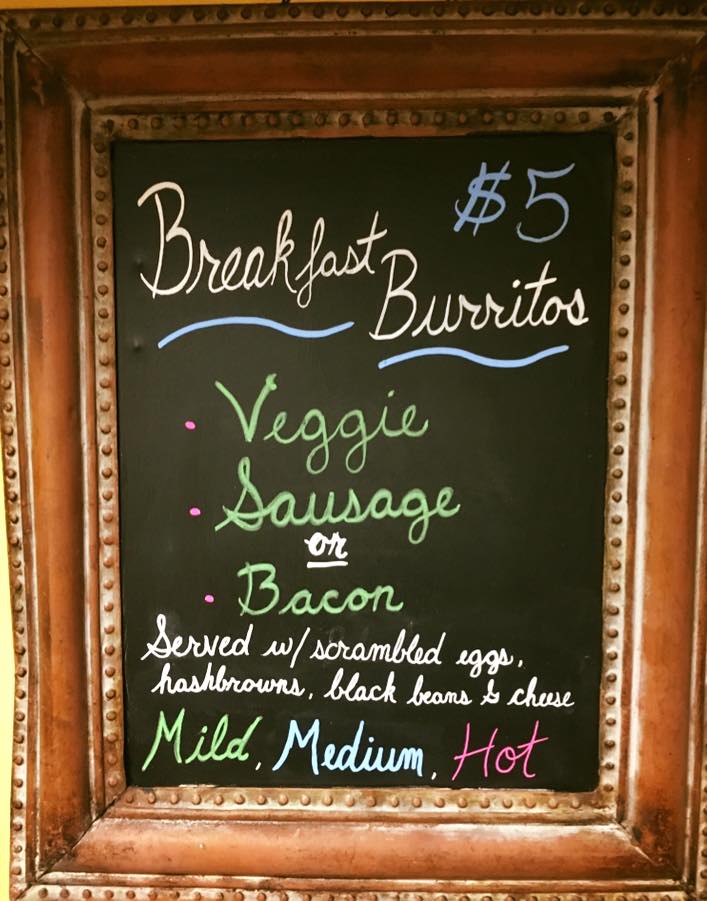 $5
Breakfast
Burritos
• Veggie
• Sausage
or
• Bacon
Served w/ scrambled eggs,
hashbrowns, black beans & cheese
Mild, Medium, Hot